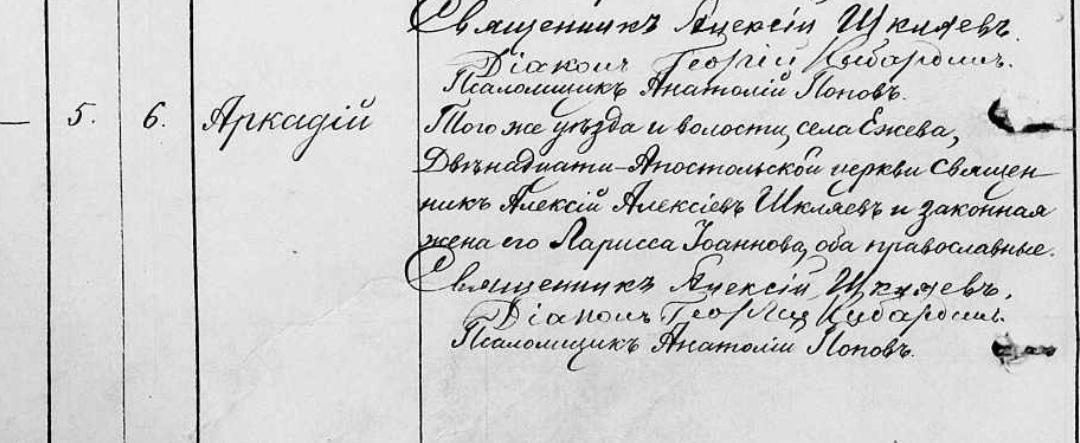 Священникъ Алексій Шкляевъ.
Діаконъ Георгій Кибардинъ.
Псаломщикъ Анатолій Поповъ.
— 5. 6. Аркадій Того же уѣзда и волости, села Ежева,
Двѣнадцати-Апостольской церкви священ-
никъ Алексій Алексіевъ Шкляевъ и законная
жена его Ларисса Іоаннова, оба православные.
Священникъ Алексій Шкляевъ.
Діаконъ Георгій Кибардинъ.
Псаломщикъ Анатолій Поповъ.